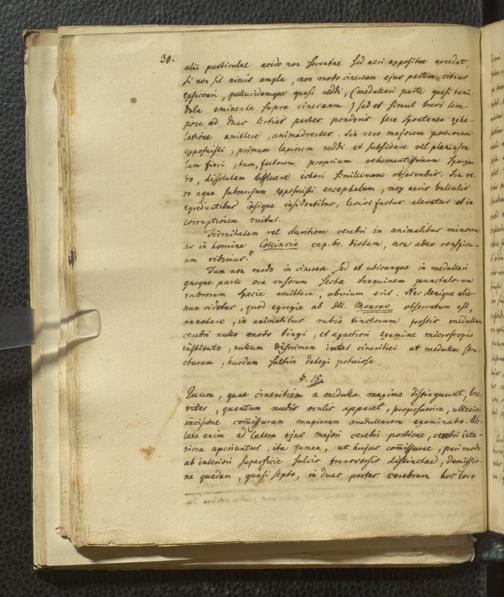 30.
alii particulae acido non servatae sed aeri expositae accidat,
si non sit nimis ampla, non modo cineream ejus partem citius
exsiccari, pellucidamque quasi reddi, (medullari parte quasi
eminente supra cineream) sed et simul brevi tem-
pore ad duas tertias partes ponderis fere spontanea exha-
latione amittere, animadvertes. Sin vero majorem portionem
exposuisti, primum laxiorem reddi et subsidere vel planiuscu-
lam fieri, tum, foetorem proprium vehementissimum spargen-
do, dissolutam diffluere similem observabis. Sin ve-
ro aqua submersum exposuisti encephalum, mox aeris bullulis
egredientibus ipsique insidentibus, levius factum elevatur et in
corruptionem ruit.
Firmitatem vel duritiem cerebri in animalibus minorem
ac in homine Collinsio cap. dictam, non adeo conspicu-
am vidimus.
Tum non modo in cinerea sed et ubicunque in medullari
quoque parte vasorum secta sanguinem punctulorum
rubrorum specie emittere, obvium erit. Nec denique alie-
num videtur, quod egregie ab Ill. Monroo observatum est,
annotare, in animalibus rubia tinctorum pastis medullam
cerebri nullo modo tingi, et exactiori examine microscopio
instituto, nullum discrimen inter cineritiae et medullae stru-
cturam, hucdum saltim detegi potuisse.
§. 15.
Eorum, quae cineritiem a medulla maxime distinguunt, bre-
viter, quantum nudis oculis apparet, propositorum, ulteriori
incisione commissuram magnam medullarem examinabo. Ab-
lata enim ad latera ejus majori cerebri portione, cerebri inte-
riora aperiuntur, ita tamen, ut hujus commissurae, pari modo
ab interiori superficie sulcis transversis distinctae, demissio-
ne quadam, quasi septo, in duas partes cerebrum hoc loco